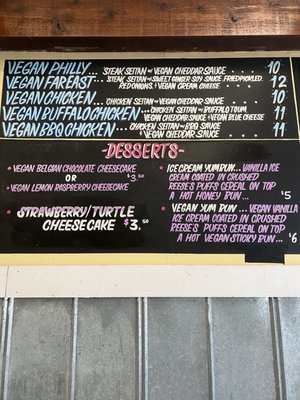 VEGAN PHILLY... STEAK SEITAN VEGAN CHEDDAR SAUCE . . . . 10
VEGAN FAR EAST ... STEAK SEITAN SWEET GINGER SOY SAUCE FRIED PICKLED
RED ONIONS VEGAN CREAM CHEESE 12
VEGAN CHICKEN ... CHICKEN SEITAN VEGAN CHEDDAR SAUCE 10
VEGAN BUFFALO CHICKEN ... CHICKEN SEITAN BUFFALO TOUM,
VEGAN CHEDDAR SAUCE VEGAN BLUE CHEESE 11
VEGAN BBQ CHICKEN ... CHICKEN SEITAN BBQ SAUCE
VEGAN CHEDDAR SAUCE 11
-DESSERTS-
• VEGAN BELGIAN CHOCOLATE CHEESECAKE
OR $3.50
• VEGAN LEMON RASPBERRY CHEESECAKE
• STRAWBERRY/TURTLE
CHEESECAKE $3.50
• ICE CREAM YUM BUN... VANILLA ICE
CREAM COATED IN CRUSHED
REESE'S PUFFS CEREAL ON TOP
A HOT HONEY BUN... $5
• VEGAN YUM BUN ... VEGAN VANILLA
ICE CREAM COATED IN CRUSHED
REESE'S PUFFS CEREAL ON TOP
A HOT VEGAN STICKY BUN... $6